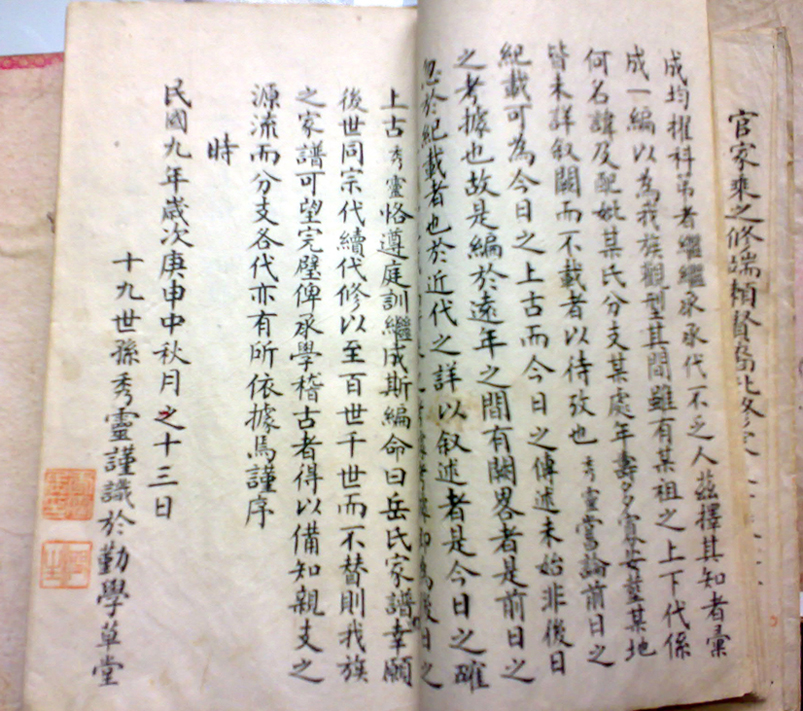 官家乘之修端賴賢裔
成均擢科弟者繼繼承承代不乏人茲擇其知者彙
成一編以為我族觀型其間雖有某祖之上下代係
何名諱及配妣某氏分支某處年壽多寡安塟某地
皆未詳叙闕而不載者以待攷也秀靈嘗論前日之
紀載可為今日之上古而今日之傳述未始非後日
之考據也故是編於遠年之間有闕畧者是前日之
忽於紀載者也於近代之詳以叙述者是今日之確
後日之
上古秀靈恪遵庭訓繼成斯編命曰岳氏家譜幸願
後世同宗代續代修以至百世千世而不替則我族
之家譜可望完璧俾承學稽古者得以備知親支之
源流而分支各代亦有所依據焉謹序
時
民國九年歲次庚申中秋月之十三日
十九世孫秀靈謹識於勤學草堂